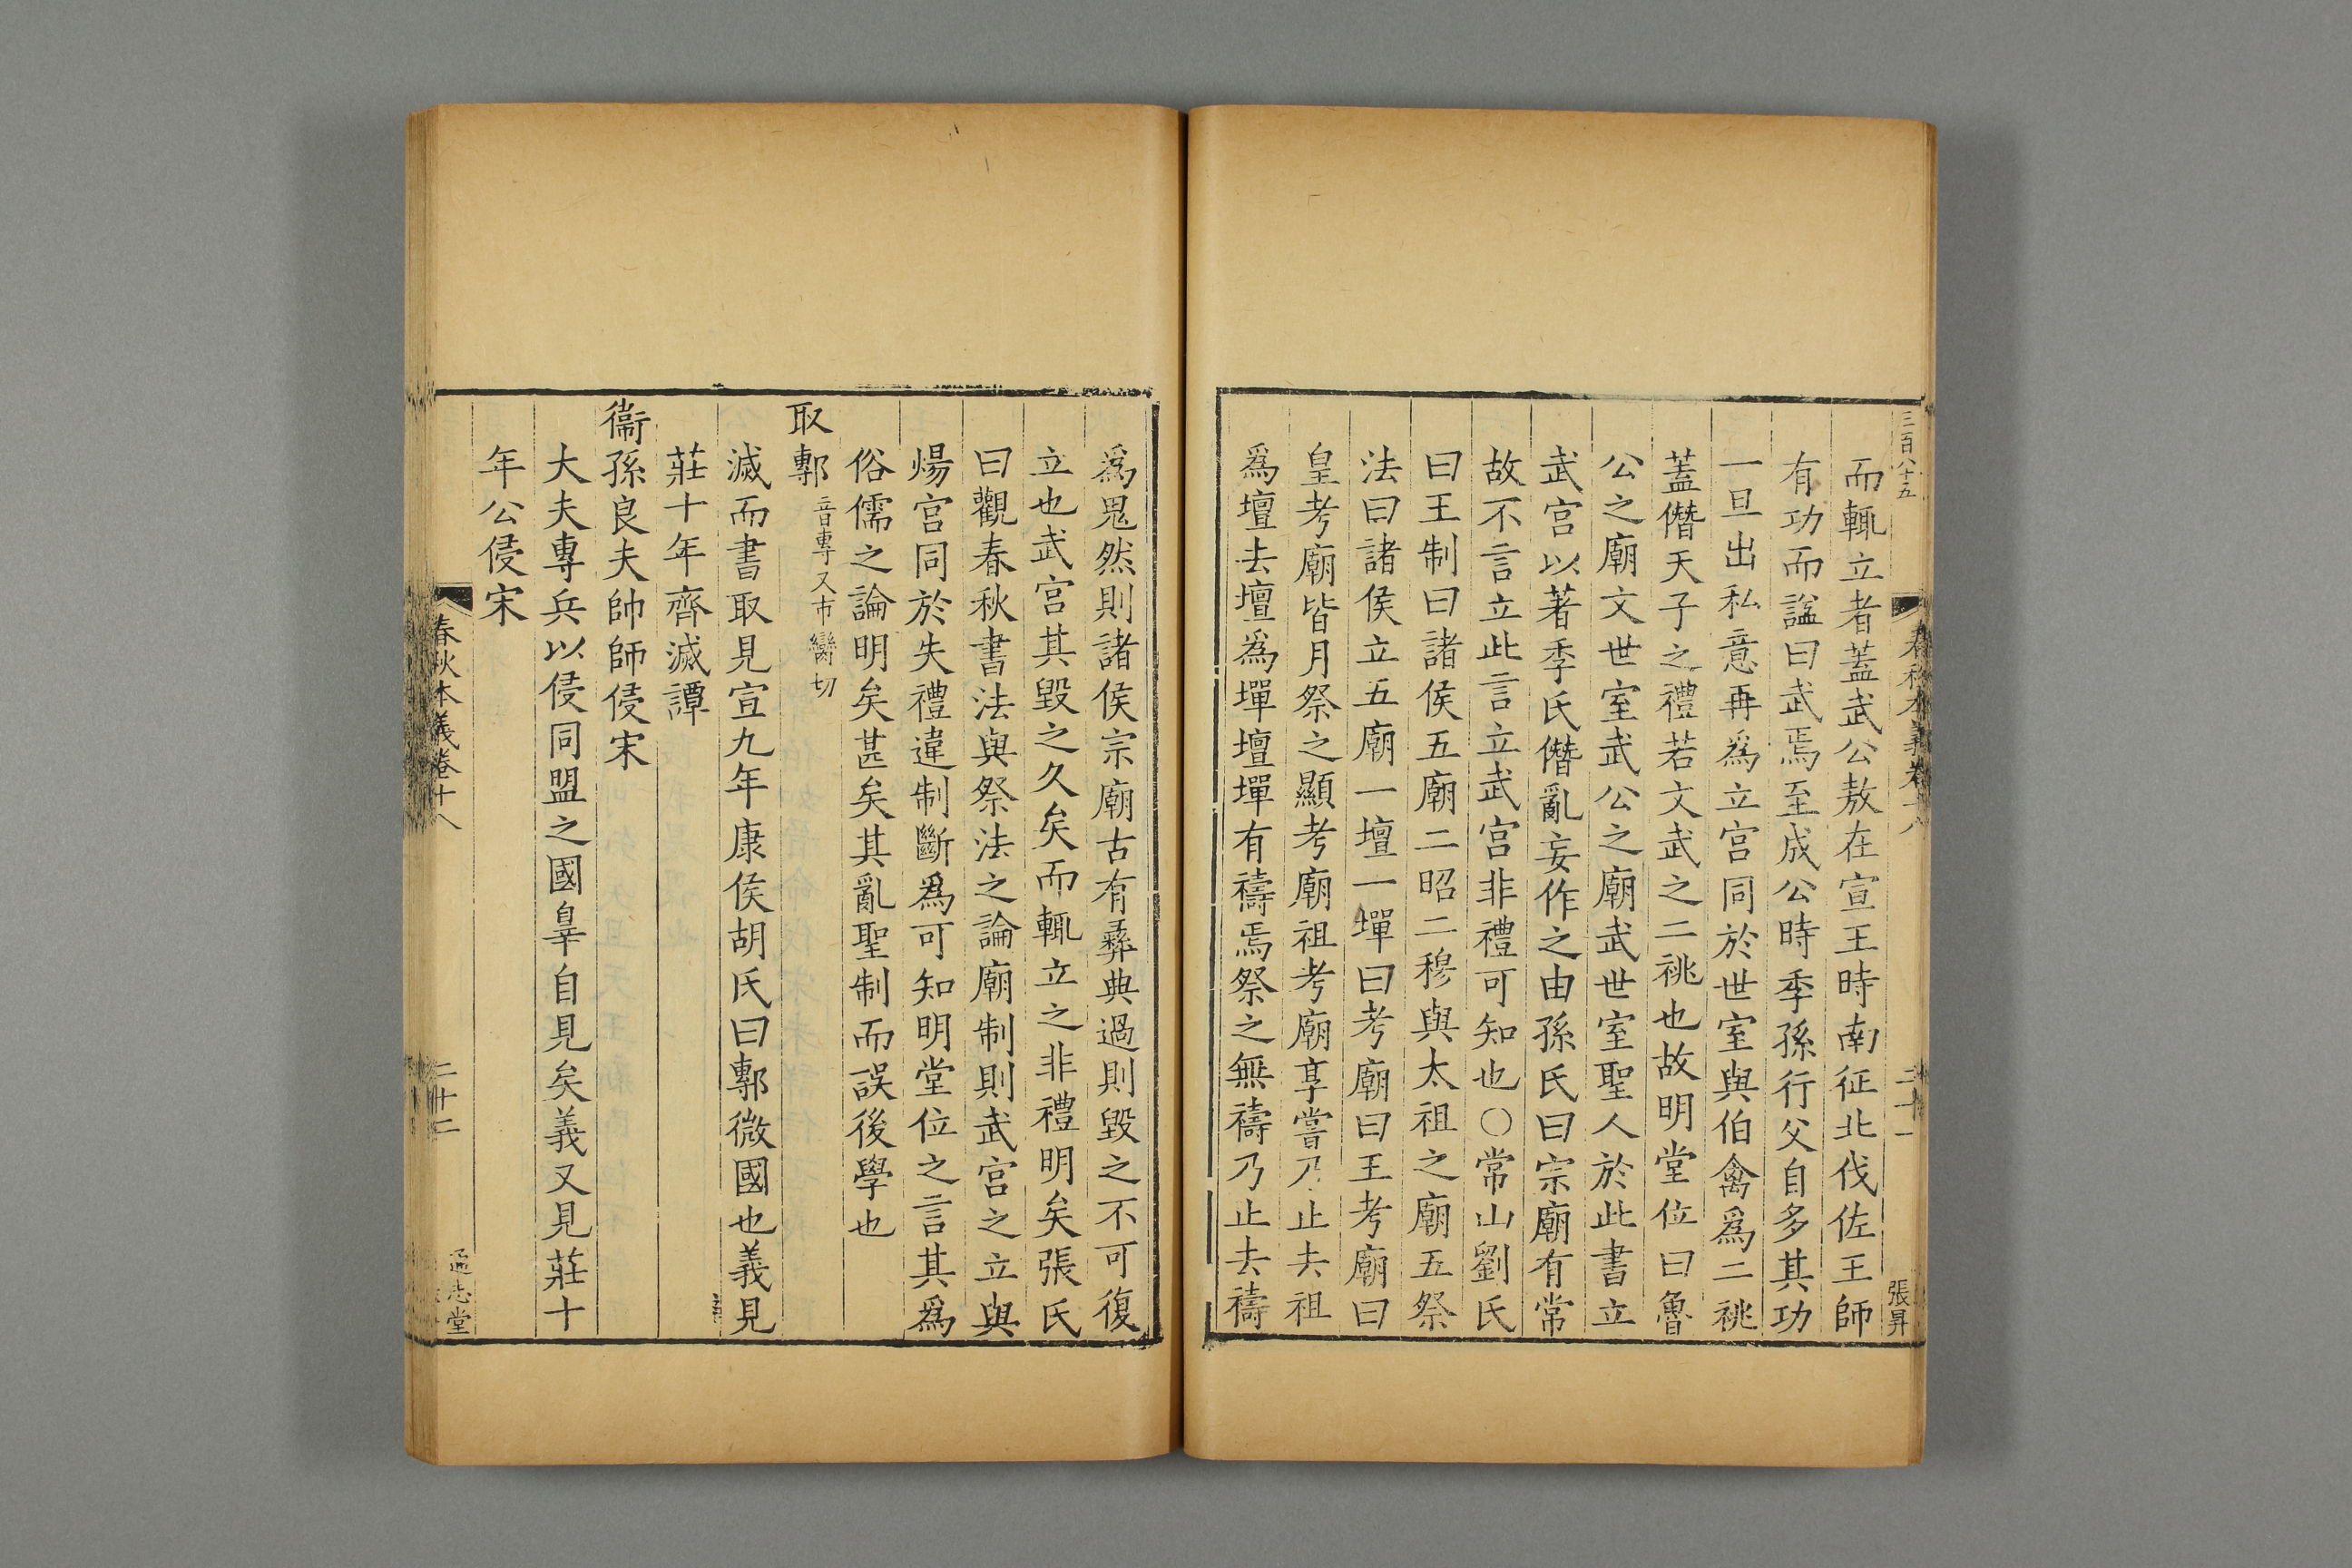 三百八十五
春秋本義卷十八
二十一
張昇
而輒立者蓋武公敖在宣王時南征北伐佐王師
有功而謚曰武焉至成公時季孫行父自多其功
一旦出私意再爲立宮同於世室與伯禽爲二祧
蓋僭天子之禮若文武之二祧也故明堂位曰魯
公之廟文世室武公之廟武世室聖人於此書立
武宮以著季氏僭亂妄作之由孫氏曰宗廟有常
故不言立此言立武宮非禮可知也○常山劉氏
曰王制曰諸侯五廟二昭二穆與太祖之廟五祭
法曰諸侯立五廟一壇一墠曰考廟曰王考廟曰
皇考廟皆月祭之顯考廟祖考廟享嘗乃止去祖
爲壇去壇爲墠壇墠有禱焉祭之無禱乃止去禱
爲鬼然則諸侯宗廟古有彞典過則毀之不可復
立也武宮其毀之久矣而輒立之非禮明矣張氏
曰觀春秋書法與祭法之論廟制則武宮之立與
煬宮同於失禮違制斷爲可知明堂位之言其爲
俗儒之論明矣甚矣其亂聖制而誤後學也
取鄟音專又市臠切
滅而書取見宣九年康侯胡氏曰鄟微國也義見
莊十年齊滅譚
衞孫良夫帥師侵宋
大夫專兵以侵同盟之國辠自見矣義又見莊十
年公侵宋
春秋本義卷十八
二十二
通志堂